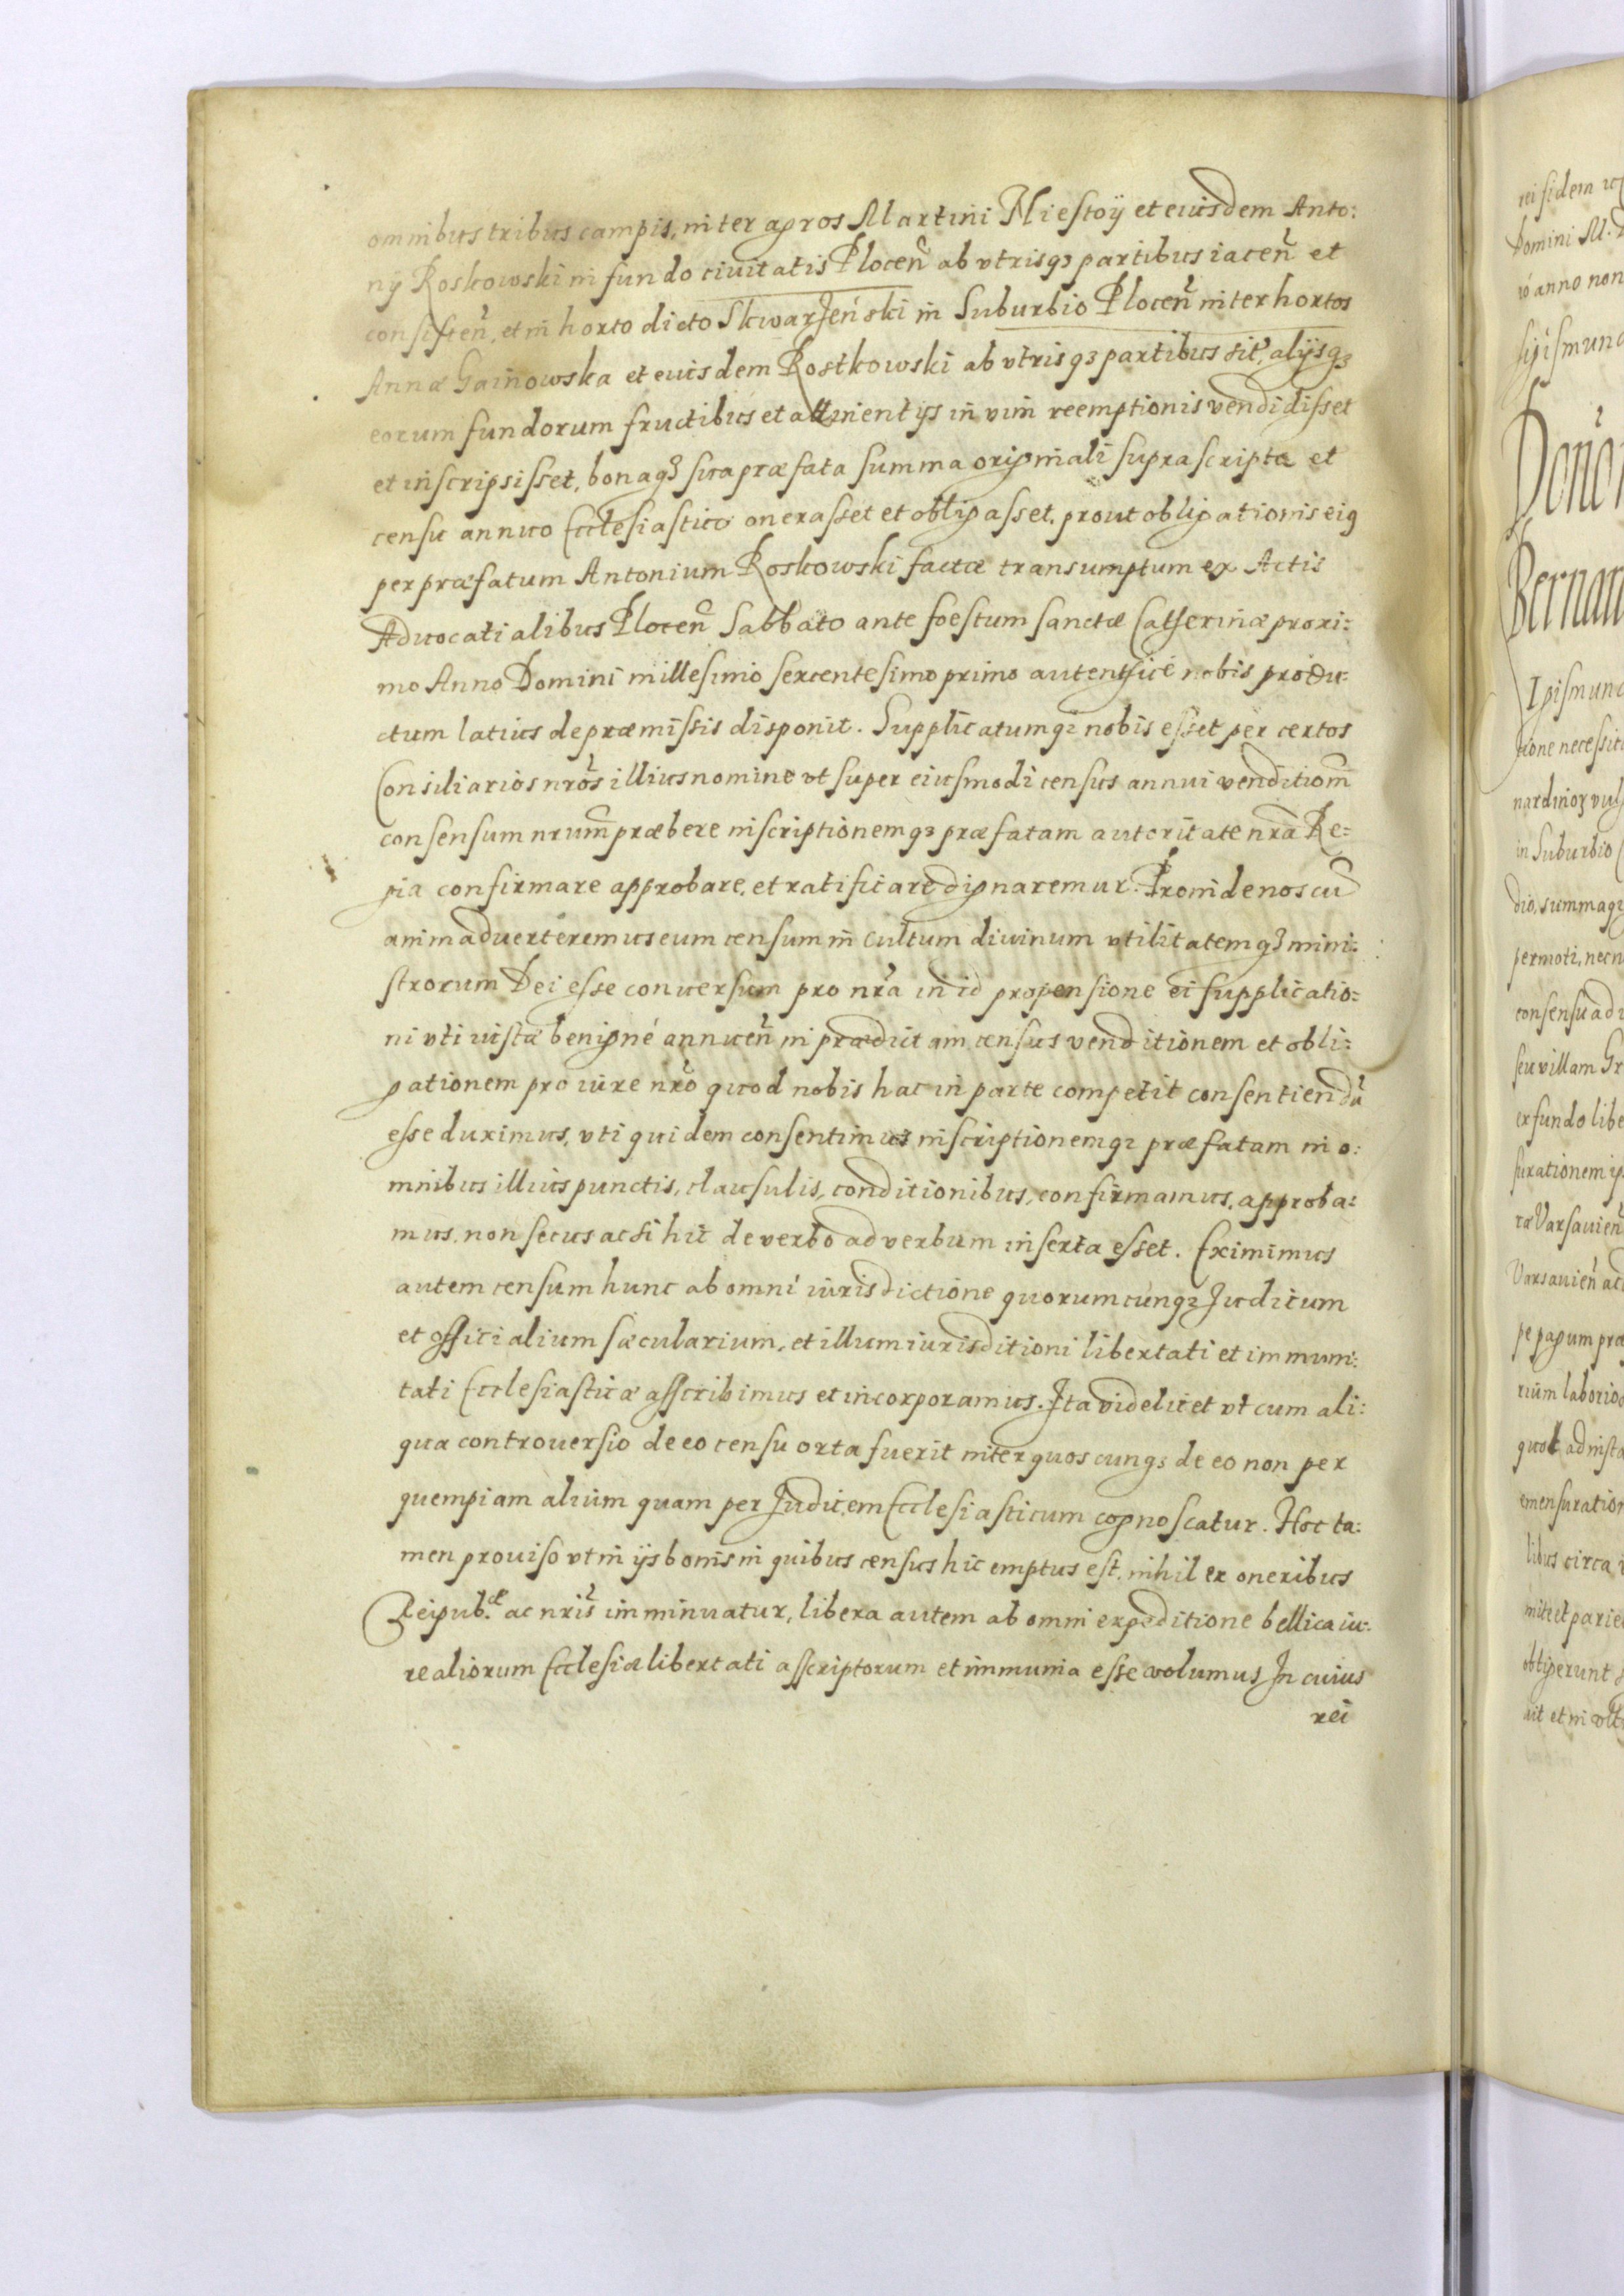 omnibus tribus campis, inter agros Martini Miestoÿ et eiusdem Anto:
nÿ Roskowski in fundo ciuitatis Plocen̄ ab vtrisqꝫ partibus iacen̄ et
consisten̄, et in horto dicto Skwarzeński in Suburbio Plocen̄ inter hortos
Annæ Gainowska et eiusdem Rostkowski ab vtrisqꝫ partibus sit̄, alÿsqꝫ
eorum fundorum fructibus et attinentÿs in vim reemptionis vendidisset
et inscripsisset, bonaqꝫ sua præfata summa originali suprascripta et
censu annuo Ecclesiastico onerasset et obligasset, prout obligationis eiꝰ
per præfatum Antonium Roskowski factæ transumptum ex Actis
Aduocatialibus Plocen̄ Sabbato ante foestum sanctæ Catherinæ proxi:
mo Anno Domini millesimo sexcentesimo primo autenthicè nobis produ:
ctum latius de præmissis disponit. Supplicatumqꝫ nobis esset per certos
Consiliarios nr̄os illius nomine vt super eiusmodi census annui venditiom̄
consensum nrūm præbere inscriptionemqꝫ præfatam autoritate nrā Re=
gia confirmare approbare, et ratificare dignaremur. Proinde nos cū
animaduerteremus eum censum in cultum diuinum vtilitatemqꝫ mini:
strorum Dei esse conuersum pro nr̄a in id propensione ei supplicatio:
ni vti iustæ benigné annuen̄ in prædictam census venditionem et obli:
gationem pro iure nr̄o quod nobis hac in parte competit consentiendū
esse duximus, vti quidem consentimus inscriptionemqꝫ præfatam in o:
mnibus illius punctis, clausulis, conditionibus, confirmamus, approba:
mus, non secus ac si hic de verbo ad verbum inserta esset. Eximimus
autem censum hunc ab omni iurisdictione quorumcunqꝫ Judicum
et officialium sæcularium, et illum iurisditioni libertati et immuni:
tati Ecclesiasticæ asscribimus et incorporamus. Ita videlicet vt cum ali:
qua controuersio de eo censu orta fuerit inter quoscunqꝫ de eo non per
quempiam alium quam per Judicem Ecclesiasticum cognoscatur. Hoc ta:
men prouiso vt in ÿs bonis in quibus census hic emptus est, nihil ex oneribus
Reipub.æ ac nr̄is imminuatur, libera autem ab omni expeditione bellica iu:
re aliorum Ecclesiæ libertati asscriptorum et immunia esse volumus In cuius
rei